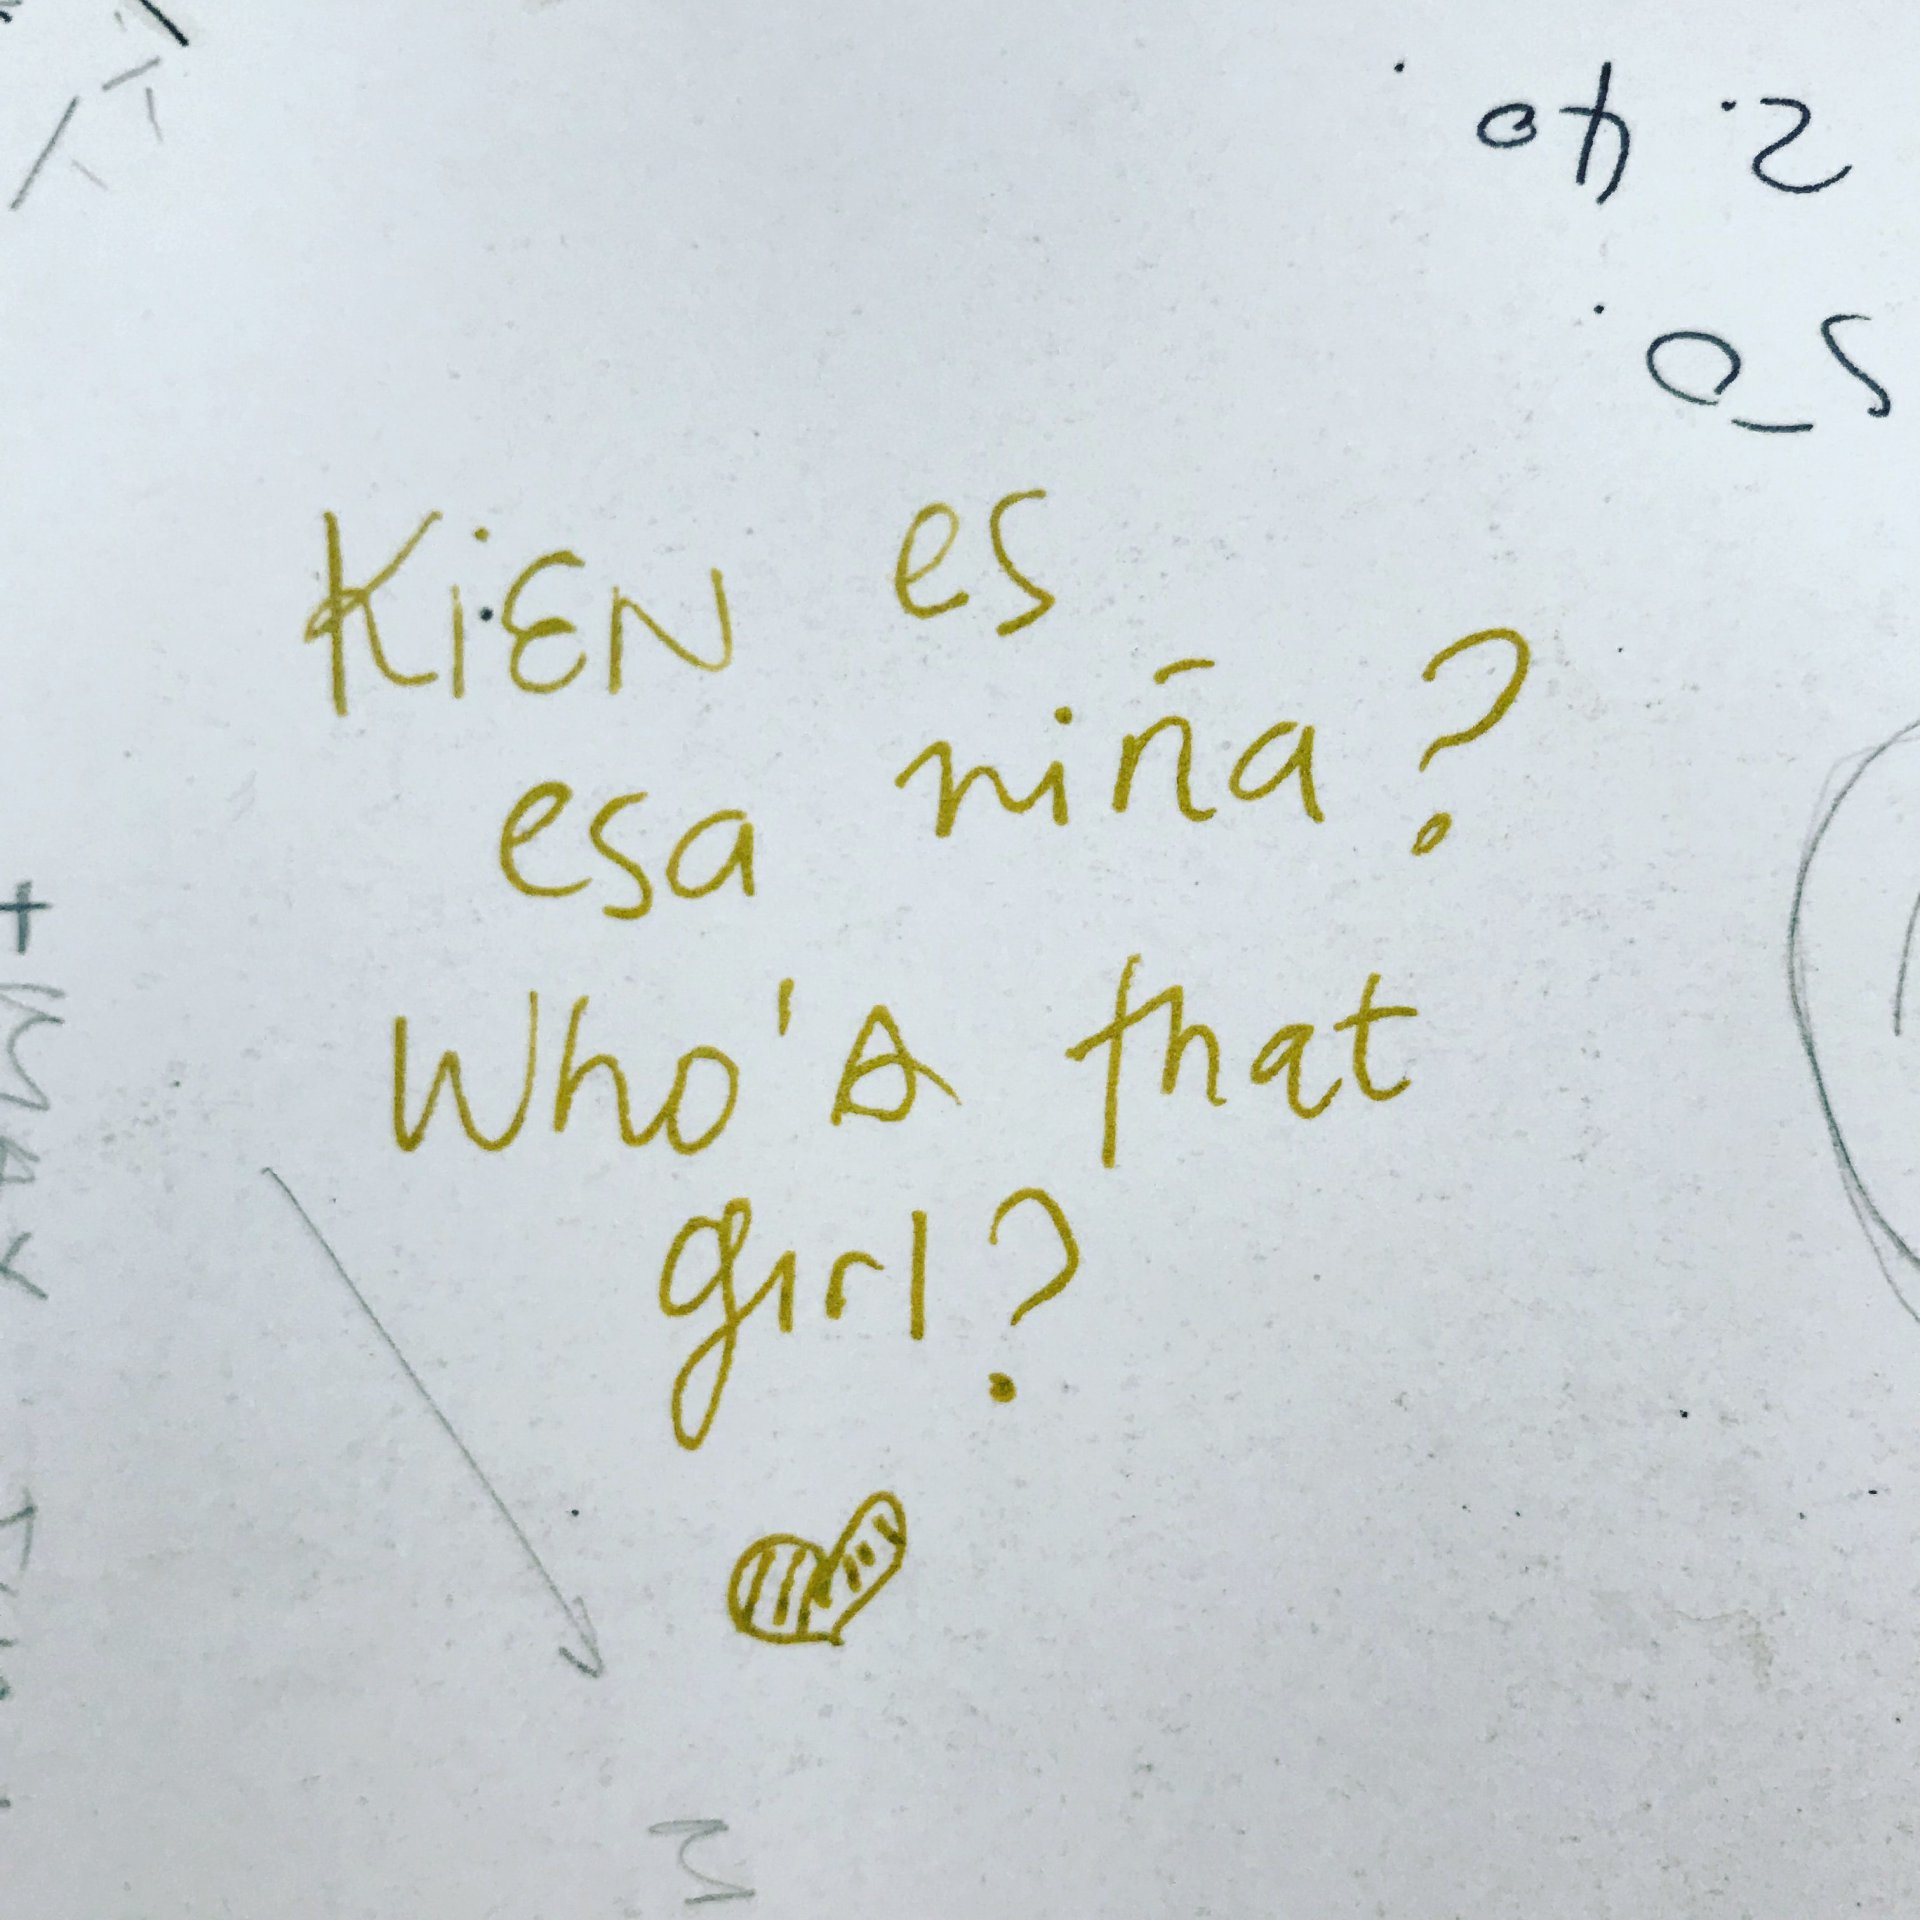 KiEN es
esa niña?
Who's that
girl?